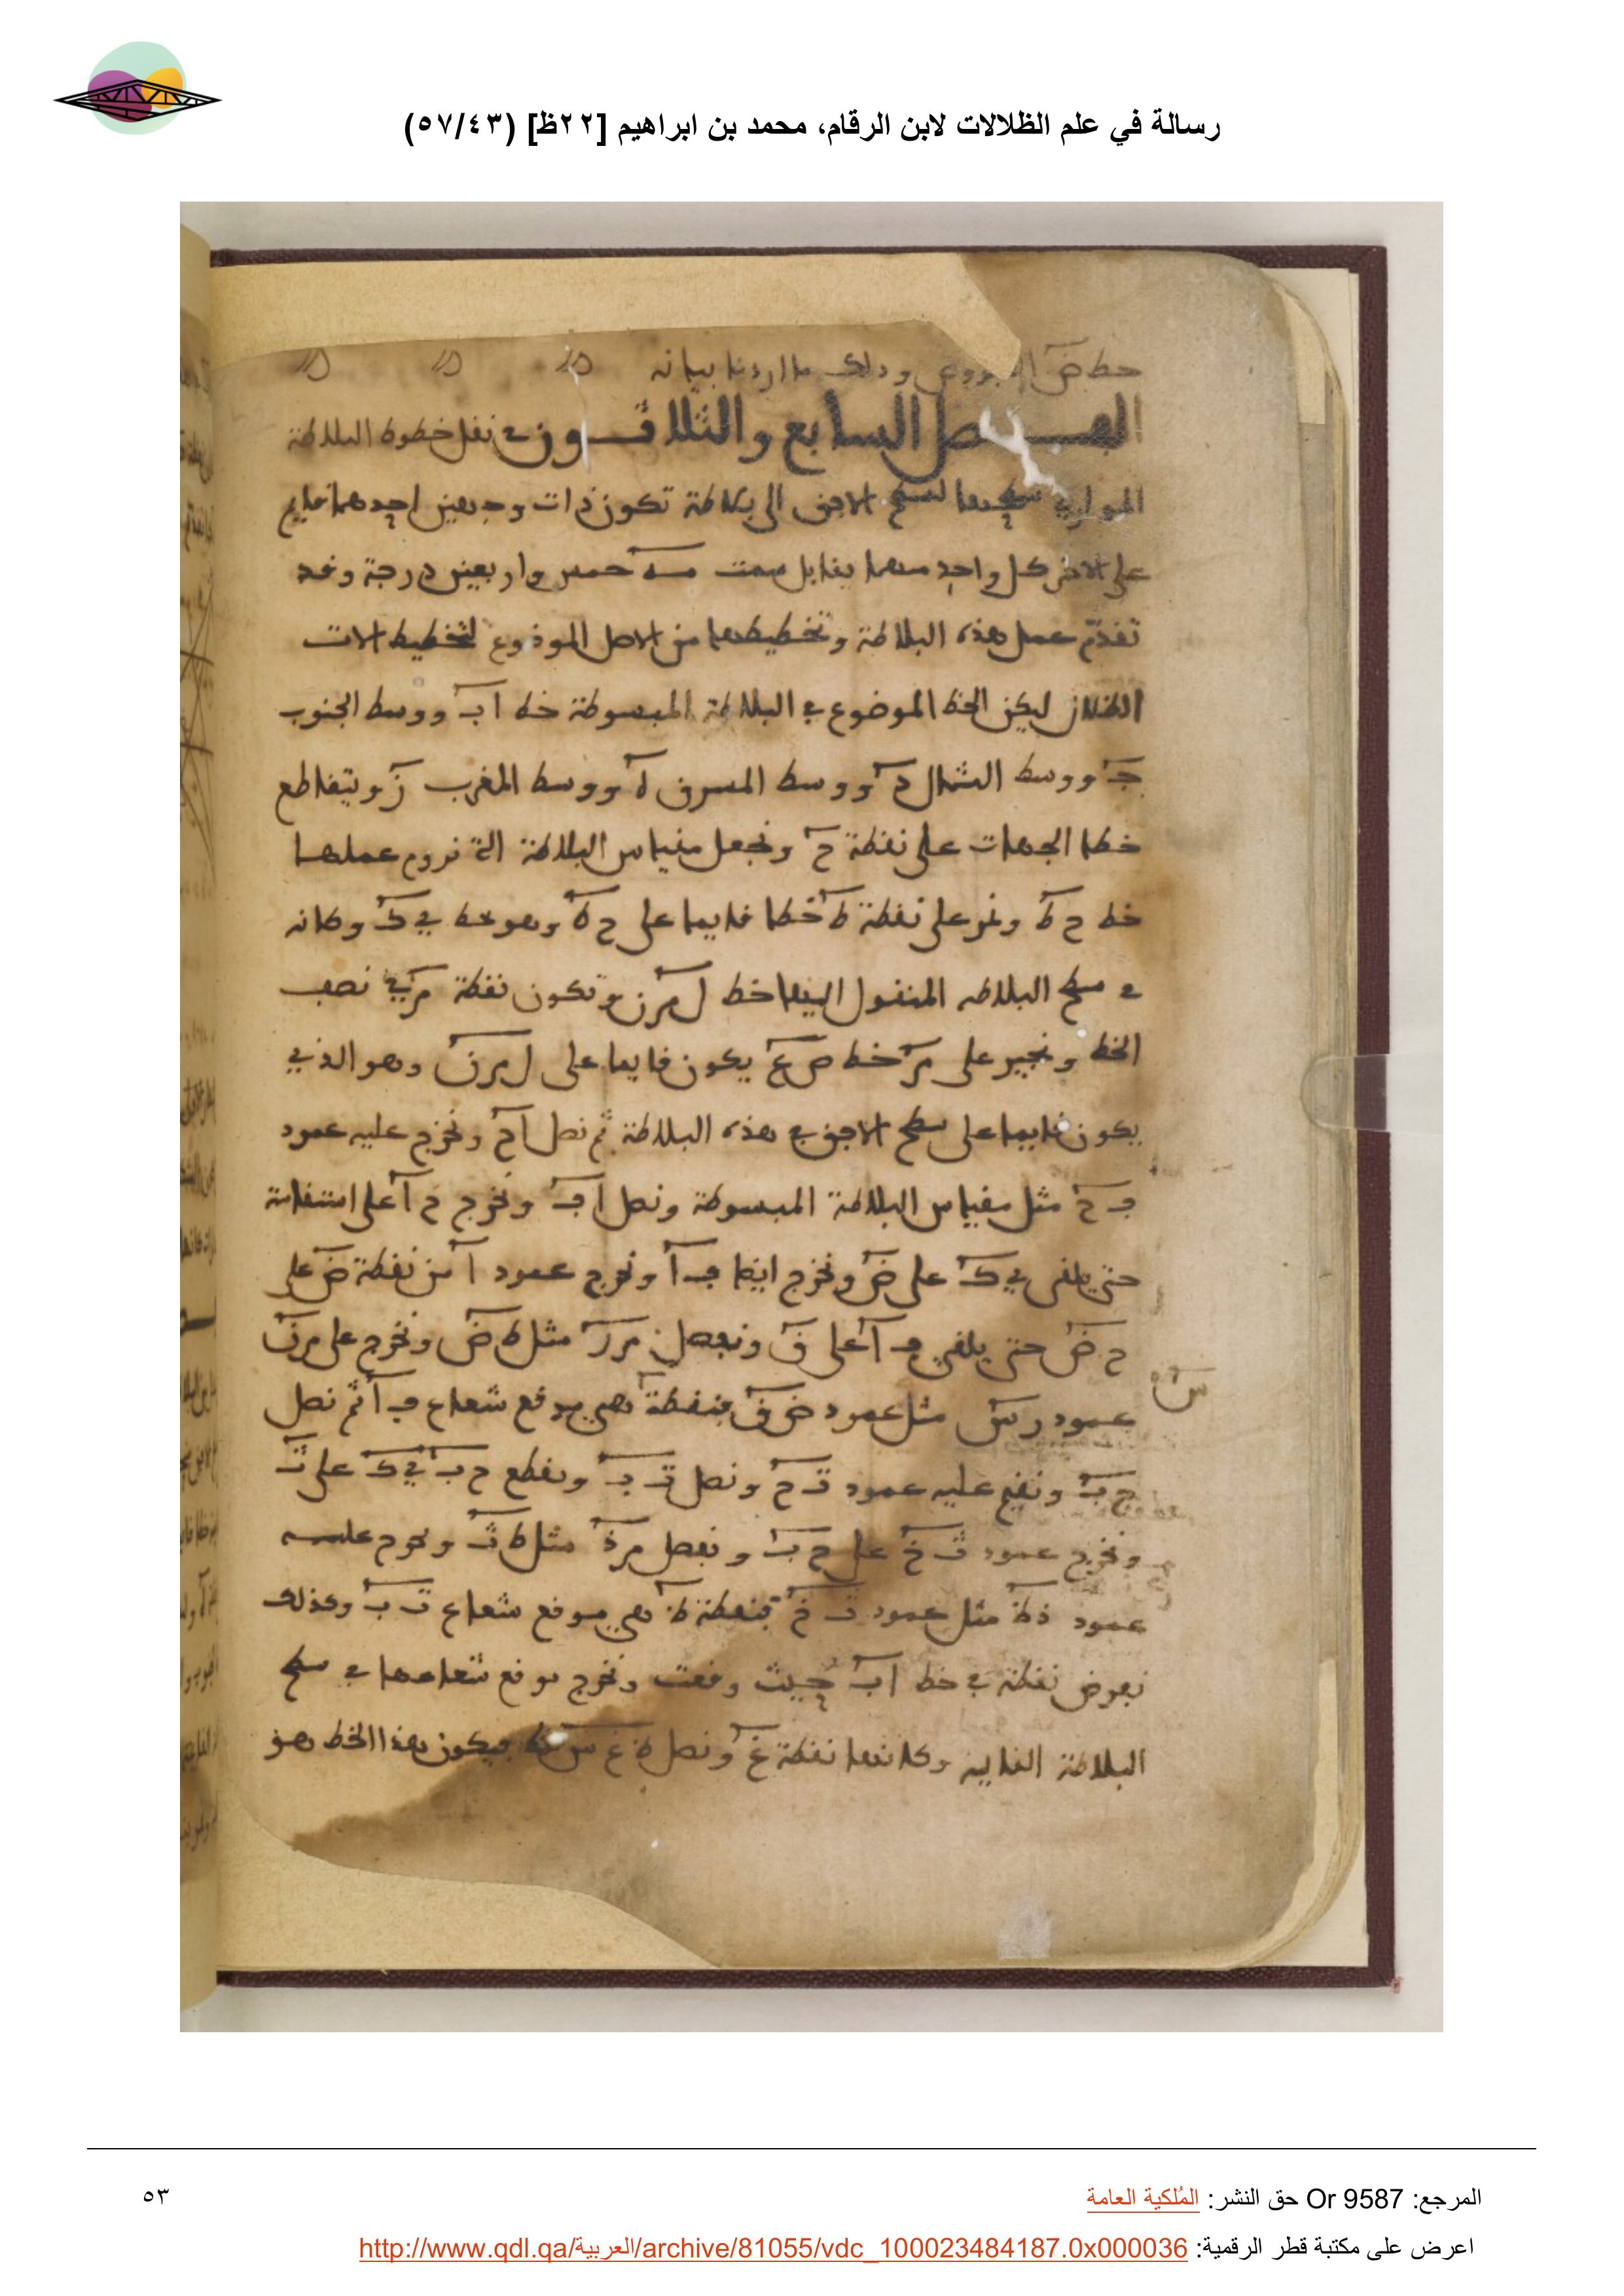 رسالة في علم الظلالات لابن الرقام، محمد بن ابراهيم [٢٢ظ] (٥٧/٤٣)
خط ض وذلك ما اردنا بيانه
الفصل السابع والثلاثون في نقل خطوط البلاطة
الموازي سطحها لسطح الافق الى بلاطة تكون ذات وجهين احدهما قايم
على الاخر كل واحد منهما يقابل سمت مـه خمس واربعين درجة وقد
تقدّم عمل هذه البلاطة وتخطيطها من الاصل الموضوع لتخطيط الات
الظلال ليكن الخط الموضوع في البلاطة المبسوطة خط ا ب ووسط الجنوب
جـ ووسط الشمال د ووسط المشرق ه ووسط المغرب ز ويتقاطع
خطا الجهات على نقطة ح ونجعل مقياس البلاطة التي نروم عملها
خط ح ط ونمر على نقطة ط خطا قايما على ح ط وهو خط ي ك وكانه
في سطح البلاطه المنقول اليها خط ل م ن وتكون نقطة م في نصف
الخط ونجيز على م خط ص ع يكون قايما على ل م ن وهو الذي
يكون قايما على سطح الافق في هذه البلاطة ثم نصل ا ح ونخرج عليه عمود
ف ح مثل مقياس البلاطة المبسوطة ونصل ا ف ونخرج ح ا على استقامة
حتى يلقى ي ك على ض ونخرج ايضا ف ا ونخرج عمود ا من نقطة ض على
ح ض حتى يلقى ف ا على ق ونفصل م ر مثل ط ض ونخرج على م ن
عمود ر س مثل عمود ض ق فنقطة هي موقع شعاع ف ا ثم نصل
س
ح ب ونقيم عليه عمود ت ح ونصل ت ب ونقطع ح ب ي ك على ث
ونخرج عمود ث خ على ح ب ونفصل م ذ مثل ط ث ونخرج عليه
عمود ذ ظ مثل عمود ث خ فنقطة ظ هي موقع شعاع ت ب وكذلك
نفرض نقطة في خط ا ب حيث وقعت ونخرج موقع شعاعها في سطح
البلاطة القايمه وكانها نقطة غ ونصل ظ غ س فيكون هذا الخط هو
المرجع: Or 9587 حق النشر: المُلكية العامة
٥٣
اعرض على مكتبة قطر الرقمية: http://www.qdl.qa/العربية/archive/81055/vdc_100023484187.0x000036